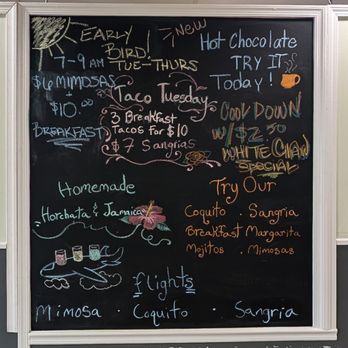 EARLY
BIRD!
7-9 AM TUE-THURS
$6 MIMOSAS
$10.00
BREAKFAST
NEW
Hot Chocolate
TRY IT
Today!
Taco Tuesday
3 Breakfast
Tacos for $10
$7 Sangrias
COOL DOWN
W/ $2.50
WHITE CLAW
SPECIAL
Homemade
Horchata & Jamaica
Try Our
Coquito . Sangria
Breakfast Margarita
Mojitos . Mimosas
flights
Mimosa . Coquito . Sangria